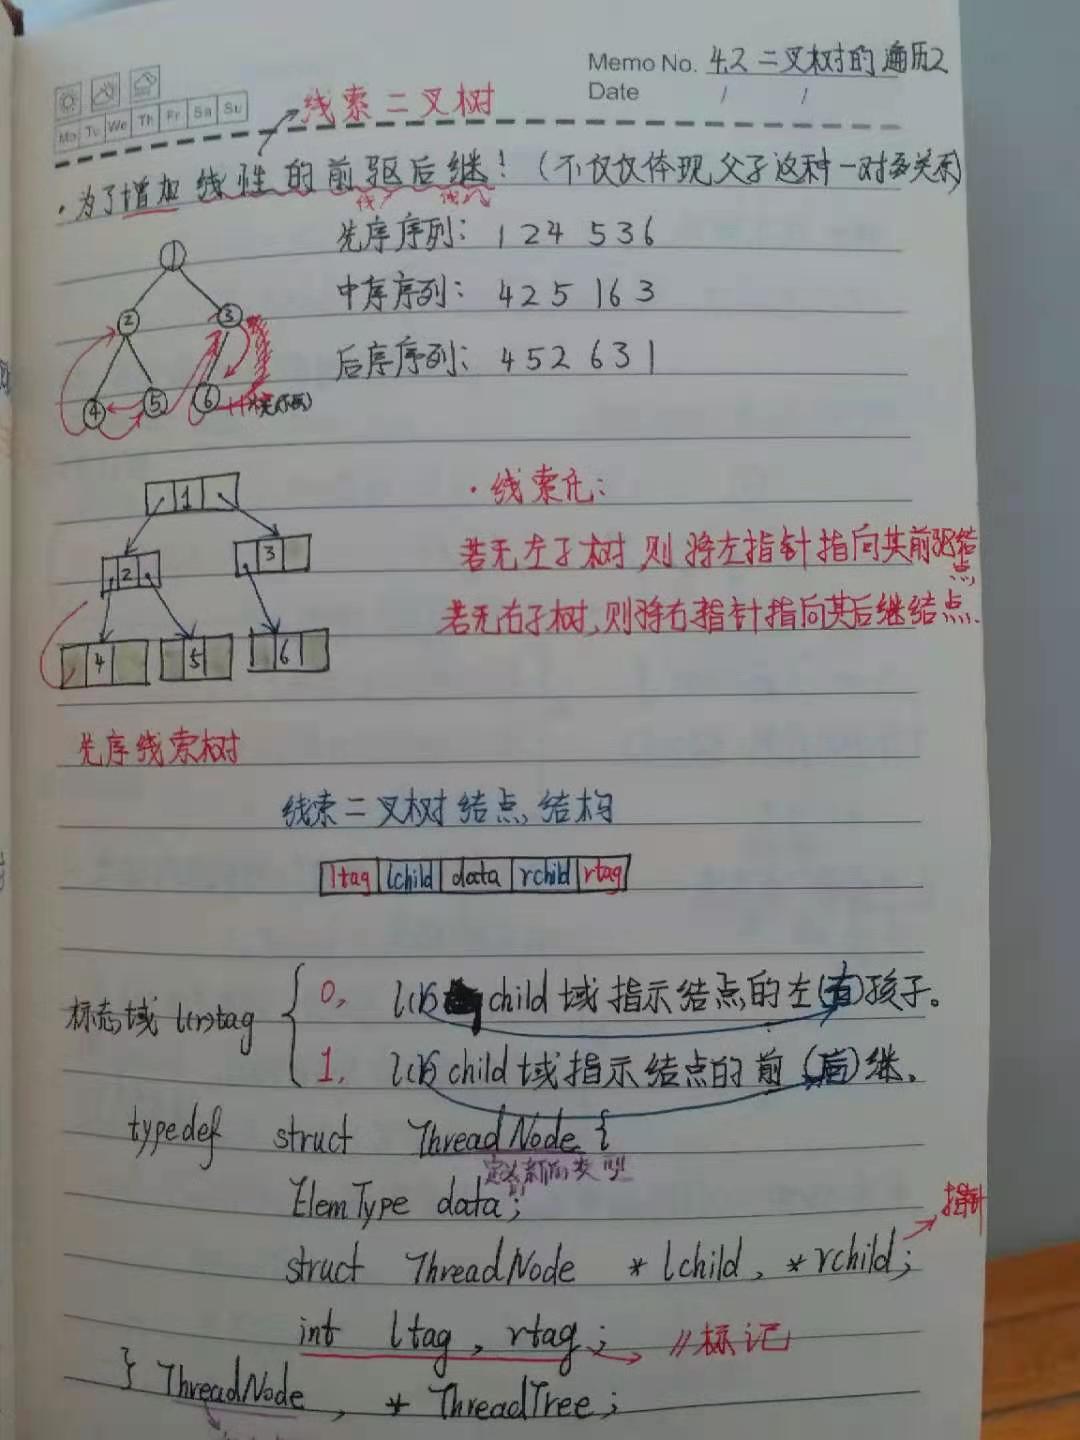 Memo No. 4.2 二叉树的遍历2
Date / /
Mo Tu We Th Fr Sa Su
线索二叉树
·为了增加线性的前驱后继!(不仅仅体现父子这种一对多关系)
先序序列: 1 2 4 5 3 6
中序序列: 4 2 5 1 6 3
后序序列: 4 5 2 6 3 1
1
2 3
4 5 6
1
2 3
4 5 6
·线索化:
若无左子树,则将左指针指向其前驱结点
若无右子树,则将右指针指向其后继结点.
先序线索树
线索二叉树结点结构
ltag lchild data rchild rtag
标志域 l(r)tag
0, l(r) child 域指示结点的左(右)孩子。
1, l(r) child 域指示结点的前(后)继.
typedef struct ThreadNode {
定义新的类型
ElemType data;
struct ThreadNode *lchild, *rchild;
指针
int ltag, rtag; //标记
} ThreadNode, *ThreadTree;